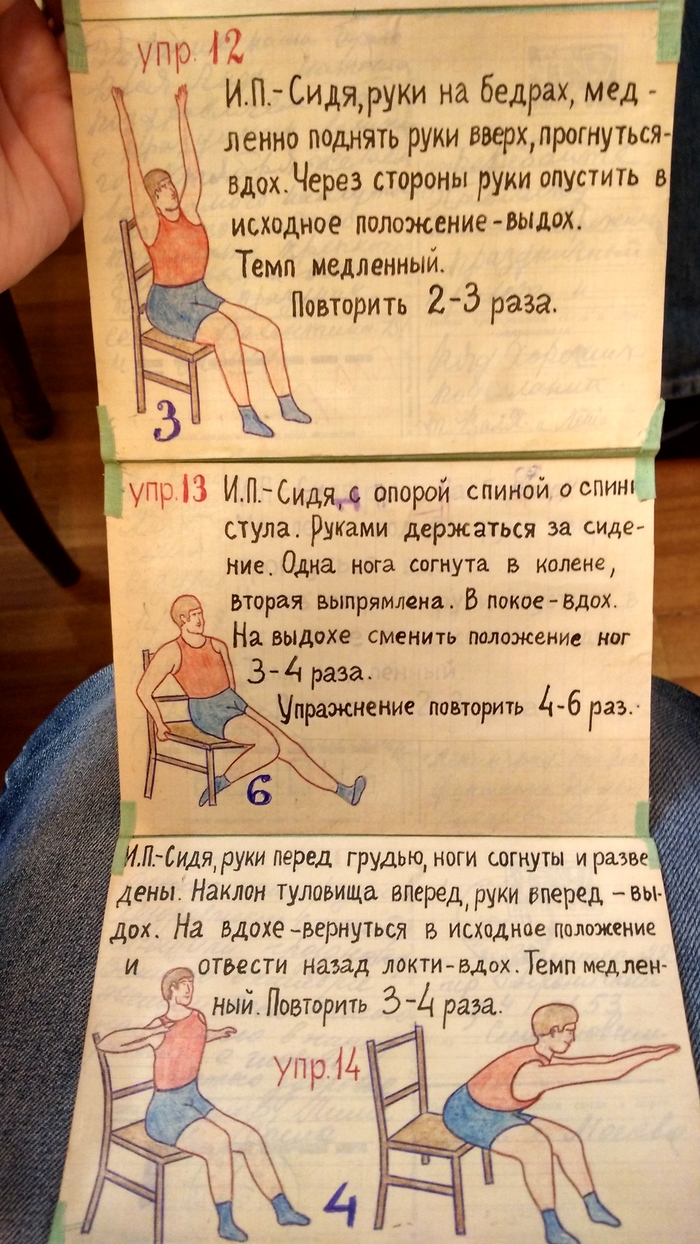 упр. 12
И.П.-Сидя, руки на бедрах, мед-
ленно поднять руки вверх, прогнуться-
вдох. Через стороны руки опустить в
исходное положение - выдох.
Темп медленный.
Повторить 2-3 раза.
3
упр. 13 И.П.-Сидя, с опорой спиной о спин
стула. Руками держаться за сиде-
ние. Одна нога согнута в колене,
вторая выпрямлена. В покое - вдох.
На выдохе сменить положение ног
3-4 раза.
Упражнение повторить 4-6 раз.
6
И.П.-Сидя, руки перед грудью, ноги согнуты и разве
дены. Наклон туловища вперед, руки вперед - вы-
дох. На вдохе - вернуться в исходное положение
и отвести назад локти - вдох. Темп медлен-
ный. Повторить 3-4 раза.
упр. 14
4